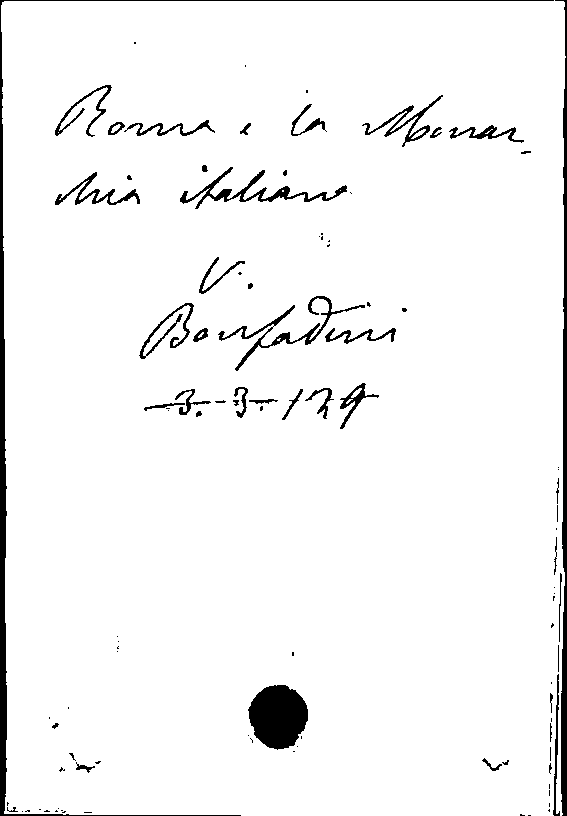 Roma e la Monar-
chia italiana
V.
Bonfadini
3. 3. 129